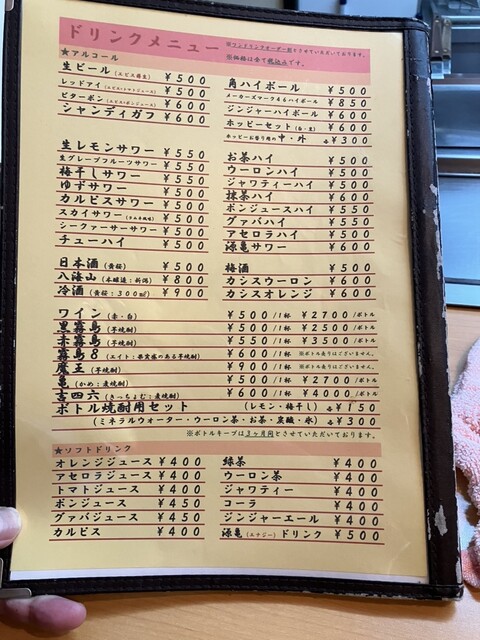 ドリンクメニュー
※ワンドリンクオーダー制とさせていただいております。
※価格は全て税込みです。
★アルコール
生ビール(エビス樽生) ¥500
レッドアイ(エビス・トマトジュース) ¥500
ビターポン(エビス・ポンジュース) ¥600
シャンディガフ ¥600
角ハイボール ¥500
メーカーズマーク46ハイボール ¥850
ジンジャーハイボール ¥600
ホッピーセット(白・黒) ¥600
ホッピーお替り用の中・外 各¥300
生レモンサワー ¥550
生グレープフルーツサワー ¥550
梅干しサワー ¥550
ゆずサワー ¥500
カルピスサワー ¥500
スカイサワー(ラムネ風味) ¥500
シークァーサーサワー ¥500
チューハイ ¥500
お茶ハイ ¥500
ウーロンハイ ¥500
ジャワティーハイ ¥500
抹茶ハイ ¥600
ポンジュースハイ ¥550
グァバハイ ¥550
アセロラハイ ¥500
源亀サワー ¥600
日本酒(黄桜) ¥500
八海山(本醸造:新潟) ¥800
冷酒(黄桜:300㎖) ¥900
梅酒 ¥500
カシスウーロン ¥600
カシスオレンジ ¥600
ワイン(赤・白) ¥500/1杯 ¥2700/ボトル
黒霧島(芋焼酎) ¥500/1杯 ¥2500/ボトル
赤霧島(芋焼酎) ¥550/1杯 ¥3500/ボトル
霧島8(エイト:果実感のある芋焼酎) ¥600/1杯 ※ボトル売りはございません。
魔王(芋焼酎) ¥900/1杯 ※ボトル売りはございません。
亀(かめ:麦焼酎) ¥500/1杯 ¥2700/ボトル
吉四六(きっちょむ:麦焼酎) ¥600/1杯 ¥4000/ボトル
ボトル焼酎用セット (レモン・梅干し) 各¥150
(ミネラルウォーター・ウーロン茶・お茶・炭酸・氷) 各¥300
※ボトルキープは3ヶ月間とさせていただいております。
★ソフトドリンク
オレンジジュース ¥400
アセロラジュース ¥400
トマトジュース ¥400
ポンジュース ¥450
グァバジュース ¥450
カルピス ¥400
緑茶 ¥400
ウーロン茶 ¥400
ジャワティー ¥400
コーラ ¥400
ジンジャーエール ¥400
源亀(エナジー)ドリンク ¥500